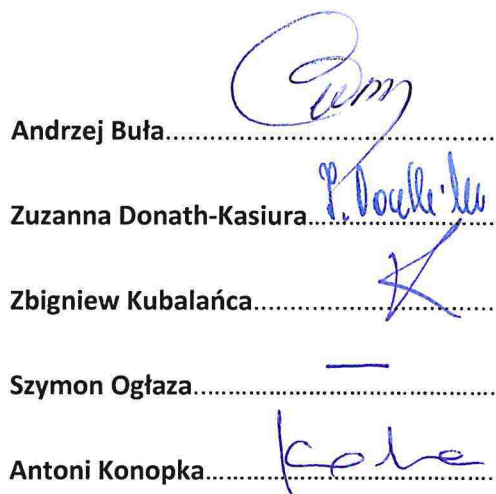 Andrzej Buła..........................................
Zuzanna Donath-Kasiura........................
Zbigniew Kubalańca................................
Szymon Ogłaza........................................
Antoni Konopka......................................